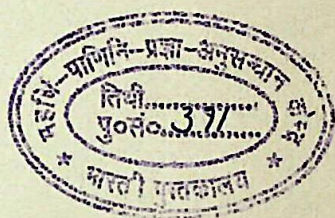 महर्षि-पाणिनि-प्रज्ञा-अनुसन्धान
तिथी..............
पु०सं०.371..........
* भारती पुस्तकालय *